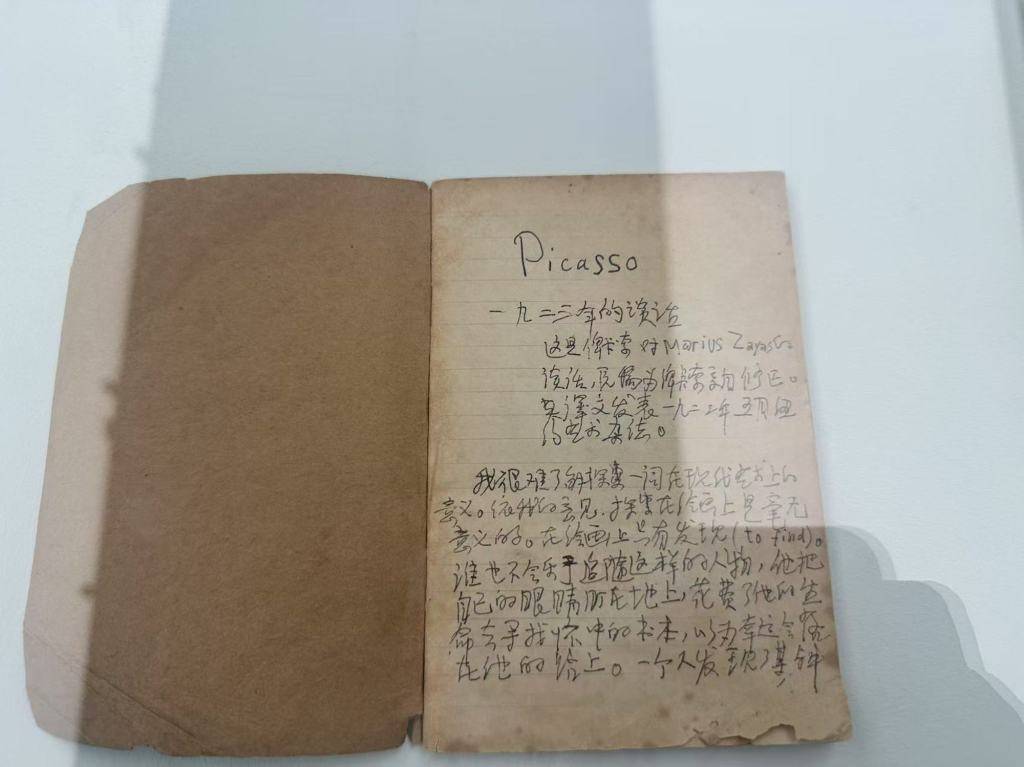 Picasso
一九二三年的谈话
这是俾卡索对Marius Zayas
谈话,
英译文发表一九二三年五月
的艺术杂志。
我很难了解探索一词在现代艺术上的
意义。依我的意见,探索在绘画上是毫无
意义的。在绘画上只有发现(to find)。
谁也不会乐于追随这样的人物,他把
自己的眼睛盯在地上,花费了他的生
命去寻找怀中的书本,以为幸运会落
在他的路上。一个人发现了某种